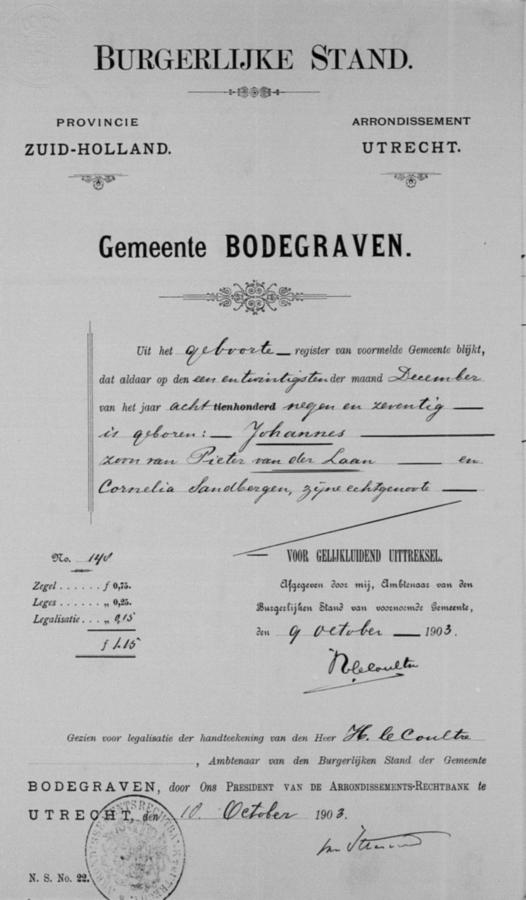 BURGERLIJKE STAND.
PROVINCIE
ZUID-HOLLAND.
ARRONDISSEMENT
UTRECHT.
Gemeente BODEGRAVEN.
Uit het geboorte register van voormelde Gemeente blijkt,
dat aldaar op den een en twintigsten der maand December
van het jaar acht tienhonderd negen en zeventig
is geboren: Johannes
zoon van Pieter van der Laan en
Cornelia Sandbergen, zijne echtgenoote
No. 148
Zegel . . . . . . f 0,75.
Leges . . . . . . „ 0,25.
Legalisatie . . . „ 0,15
f 1.15
VOOR GELIJKLUIDEND UITTREKSEL.
Afgegeven door mij, Ambtenaar van den
Burgerlijken Stand van voornoemde Gemeente,
den 9 October 1903.
H. le Coultre
Gezien voor legalisatie der handteekening van den Heer H. le Coultre
, Ambtenaar van den Burgerlijken Stand der Gemeente
BODEGRAVEN, door Ons PRESIDENT VAN DE ARRONDISSEMENTS-RECHTBANK te
UTRECHT, den 10 October 1903.
N. S. No. 22.